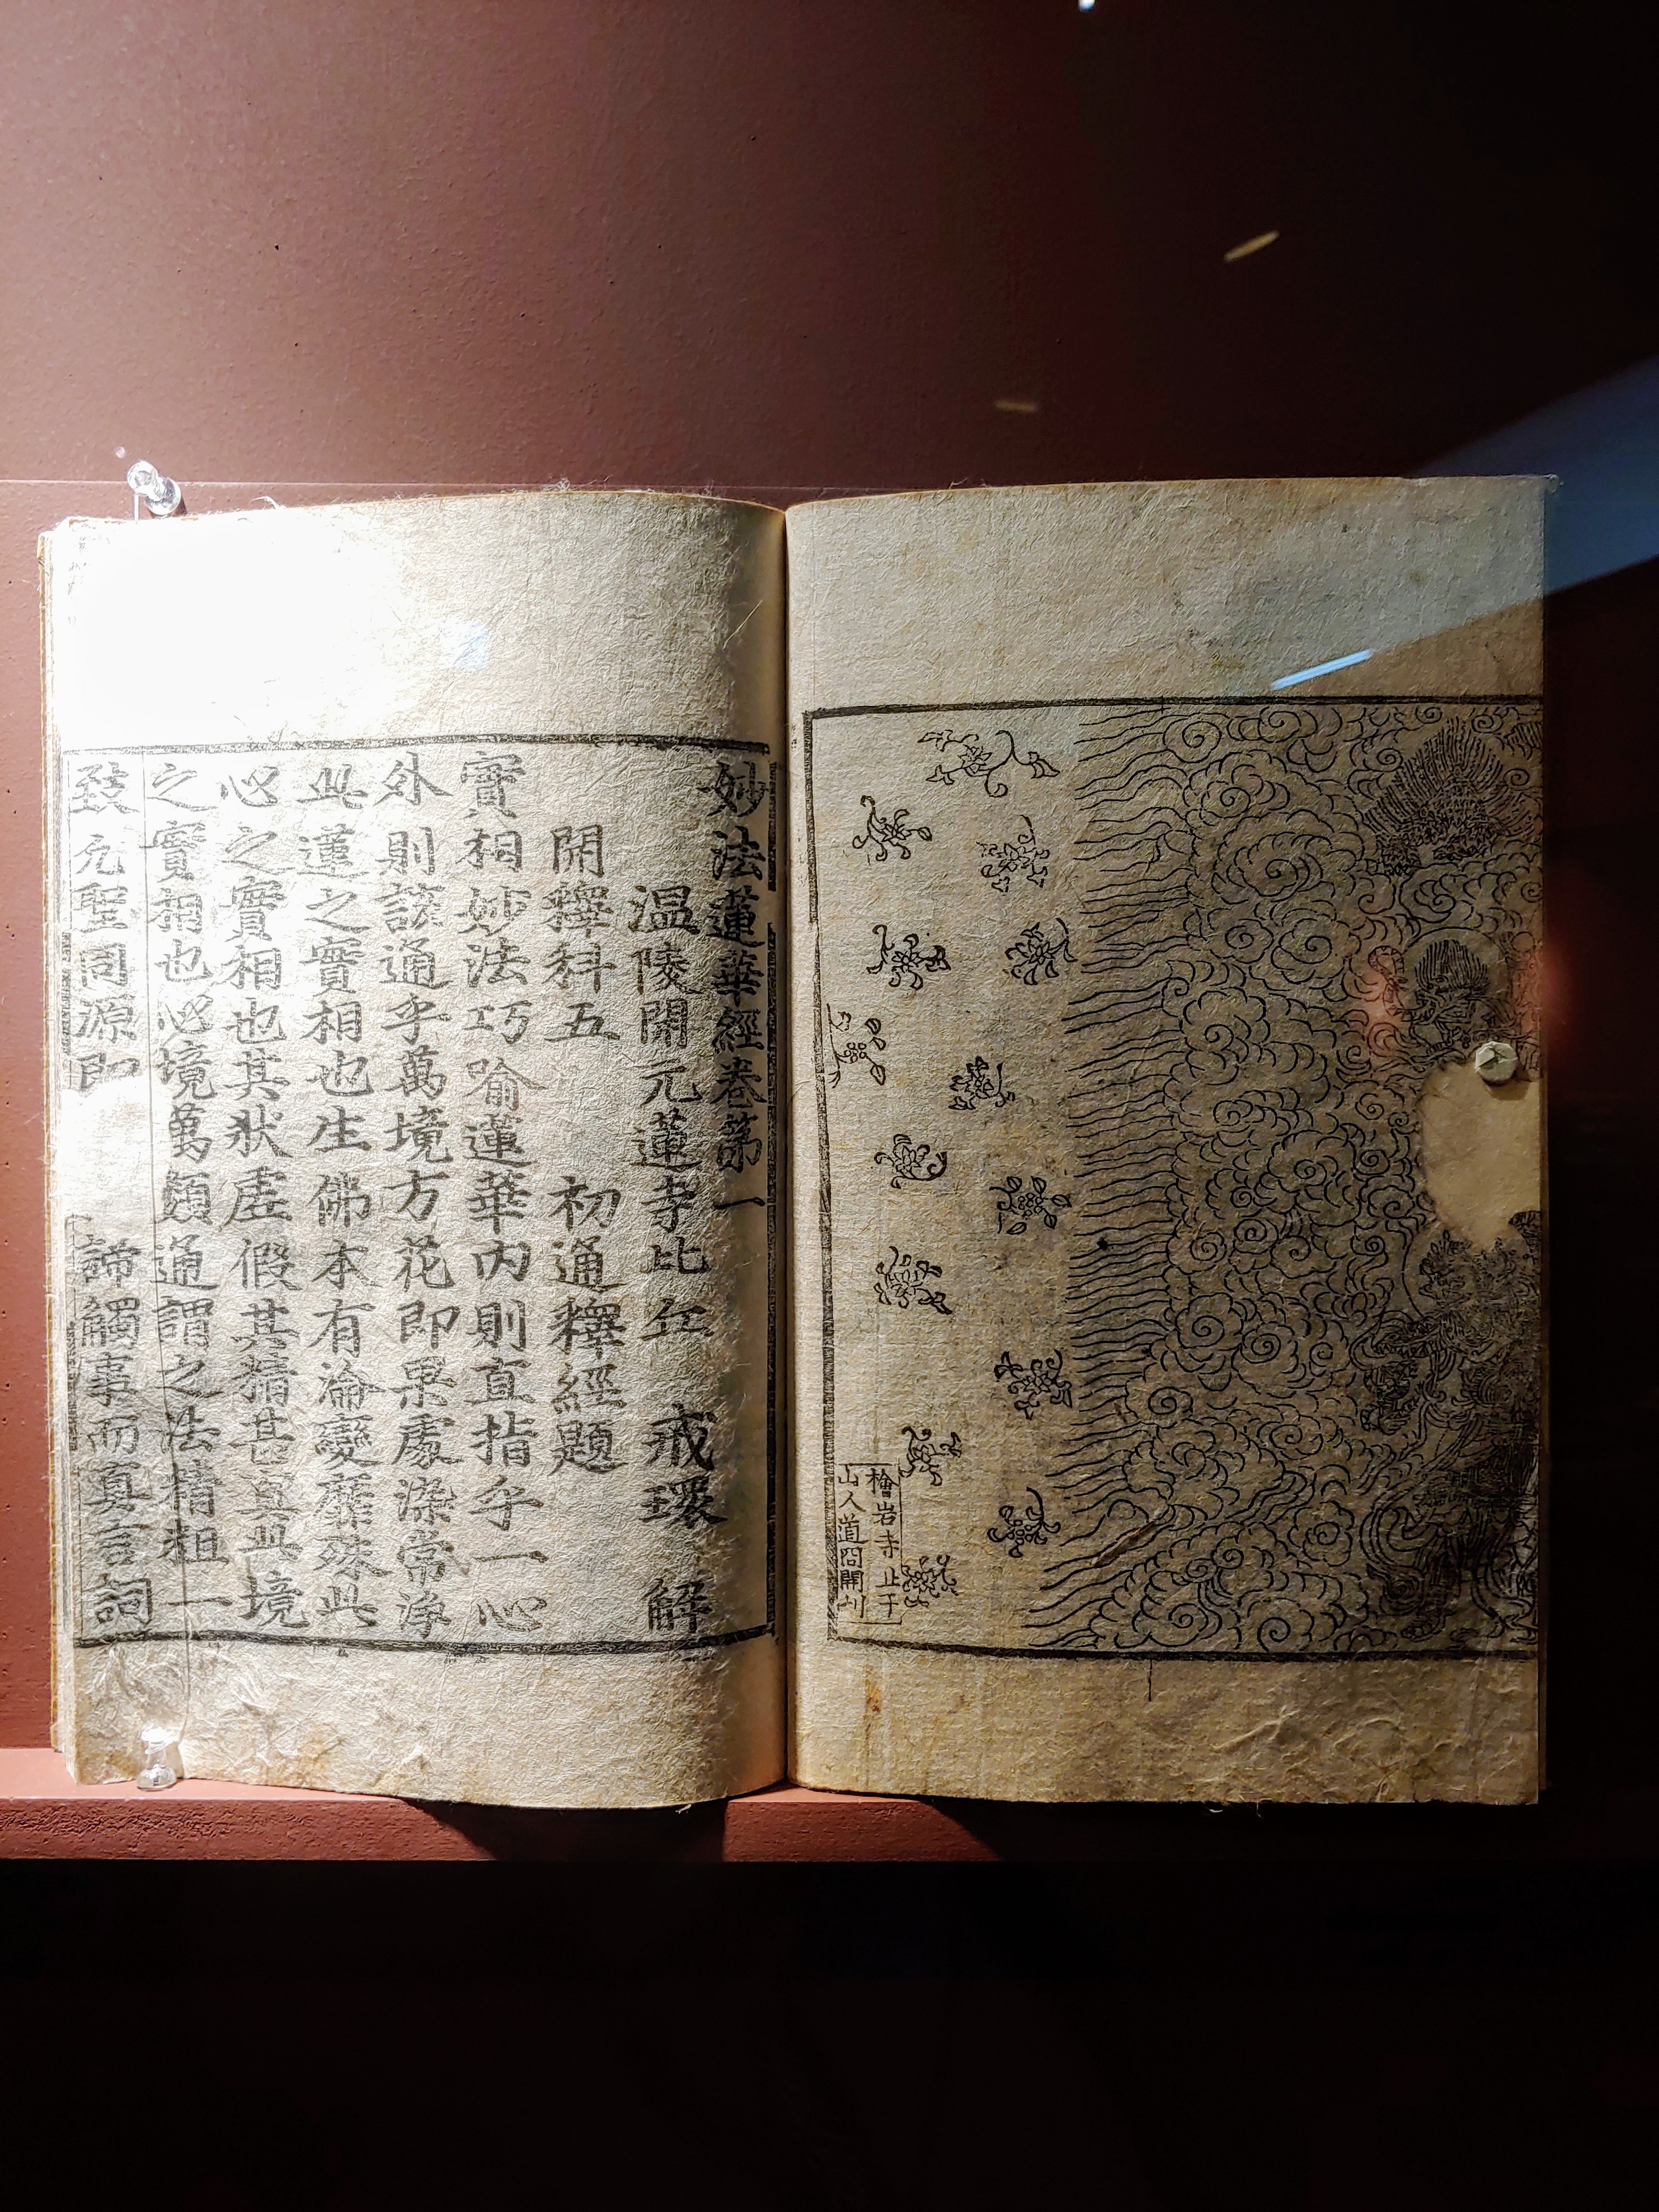 檜岩寺 止于
山人道冏開刊
妙法蓮華經卷第一
温陵開元蓮寺比丘 戒環 解
開釋科五 初通釋經題
實相妙法巧喻蓮華內則直指乎一心
外則該通乎萬境方花即果處染常淨
此蓮之實相也生佛本有淪變靡殊此
心之實相也其狀虛假其精甚真此境
之實相也心境萬類通謂之法精粗一
致凡聖同源即 諦觸事而真言詞